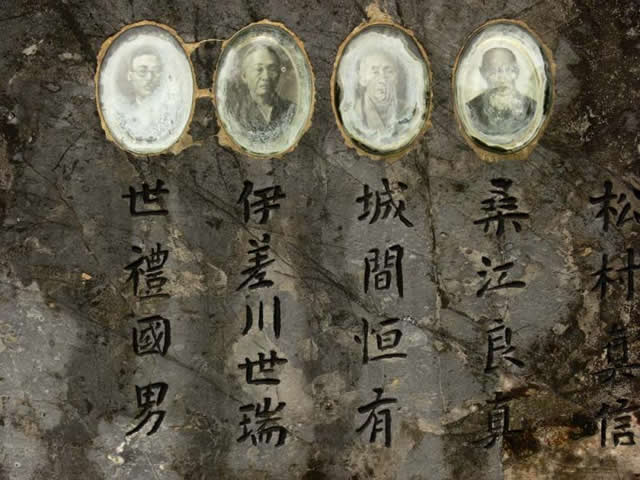 松村真信
桑江良真
城間恒有
伊差川世瑞
世禮國男